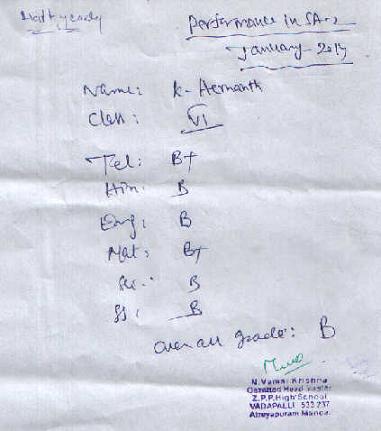 Half yearly
Performance in SA-2
January-2017
Name: K-Hemanth
Class: VI
Tel: B+
Hin: B
Eng: B
Mat: B+
Sc: B
SS: B
over all grade: B
N.Vamsi Krishna
Gazetted Head Master
Z.P.P.High School
VADAPALLI 533 237
Atreyapuram Mandal